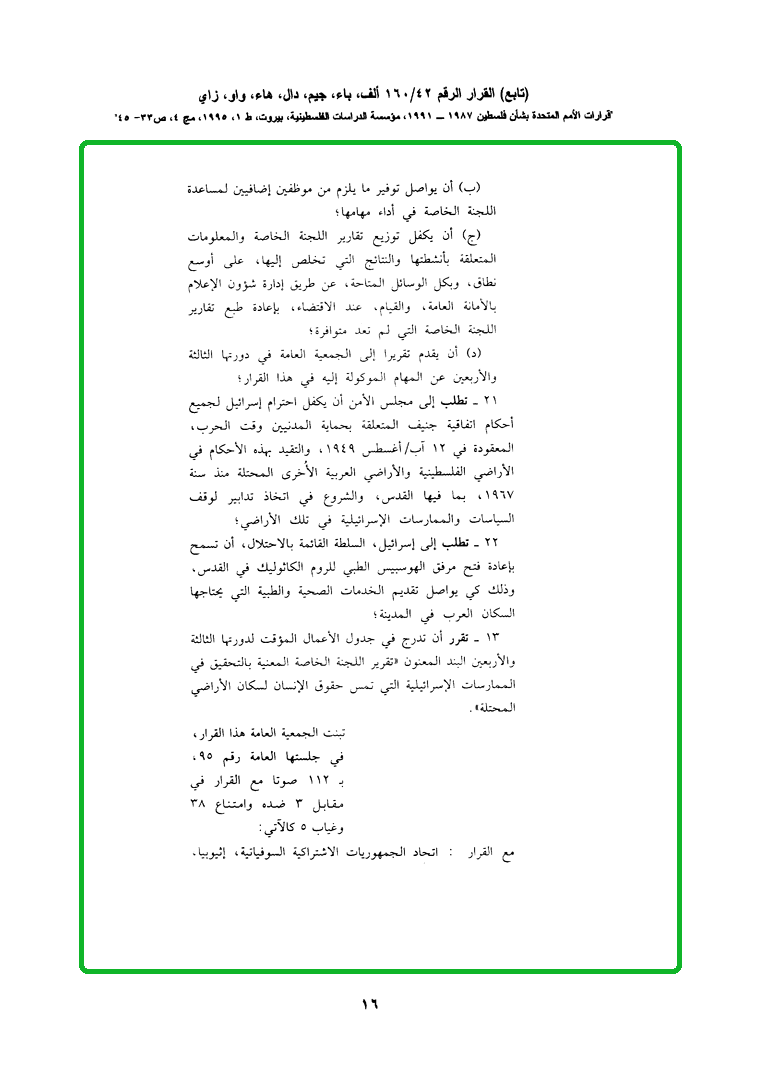 (تابع) القرار الرقم ١٦٠/٤٢ ألف، باء، جيم، دال، هاء، واو، زاي
"قرارات الأمم المتحدة بشأن فلسطين ١٩٨٧ ــ ١٩٩١، مؤسسة الدراسات الفلسطينية، بيروت، ط ١، ١٩٩٥، مج ٤، ص٣٣- ٤٥"
(ب) أن يواصل توفير ما يلزم من موظفين إضافيين لمساعدة
اللجنة الخاصة في أداء مهامها؛
(ج) أن يكفل توزيع تقارير اللجنة الخاصة والمعلومات
المتعلقة بأنشطتها والنتائج التي تخلص إليها، على أوسع
نطاق، وبكل الوسائل المتاحة، عن طريق إدارة شؤون الإعلام
بالأمانة العامة، والقيام، عند الاقتضاء، بإعادة طبع تقارير
اللجنة الخاصة التي لم تعد متوافرة؛
(د) أن يقدم تقريرا إلى الجمعية العامة في دورتها الثالثة
والأربعين عن المهام الموكولة إليه في هذا القرار؛
٢١ ـ تطلب إلى مجلس الأمن أن يكفل احترام إسرائيل لجميع
أحكام اتفاقية جنيف المتعلقة بحماية المدنيين وقت الحرب،
المعقودة في ١٢ آب/أغسطس ١٩٤٩، والتقيد بهذه الأحكام في
الأراضي الفلسطينية والأراضي العربية الأُخرى المحتلة منذ سنة
١٩٦٧، بما فيها القدس، والشروع في اتخاذ تدابير لوقف
السياسات والممارسات الإسرائيلية في تلك الأراضي؛
٢٢ ـ تطلب إلى إسرائيل، السلطة القائمة بالاحتلال، أن تسمح
بإعادة فتح مرفق الهوسبيس الطبي للروم الكاثوليك في القدس،
وذلك كي يواصل تقديم الخدمات الصحية والطبية التي يحتاجها
السكان العرب في المدينة؛
١٣ ـ تقرر أن تدرج في جدول الأعمال المؤقت لدورتها الثالثة
والأربعين البند المعنون «تقرير اللجنة الخاصة المعنية بالتحقيق في
الممارسات الإسرائيلية التي تمس حقوق الإنسان لسكان الأراضي
المحتلة».
تبنت الجمعية العامة هذا القرار،
في جلستها العامة رقم ٩٥،
بـ ١١٢ صوتا مع القرار في
مقابل ٣ ضده وامتناع ٣٨
وغياب ٥ كالآتي:
مع القرار : اتحاد الجمهوريات الاشتراكية السوفياتية، إثيوبيا،
١٦